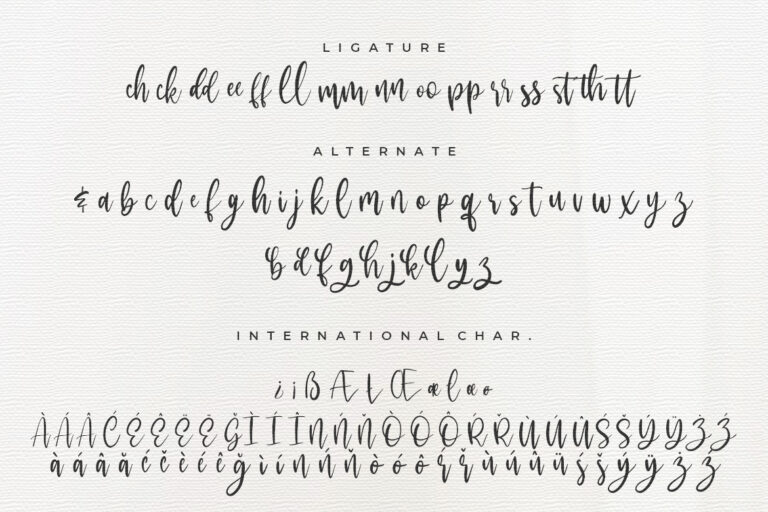 LIGATURE
ch ck dd ee ff ll mm nn oo pp rr ss st th tt
ALTERNATE
& a b c d e f g h i j k l m n o p q r s t u v w x y z
b d f g h j k l y z
INTERNATIONAL CHAR.
¿ ¡ ß Æ Ł Œ æ ł œ ø
À Á Â Ć É Ê Ë È Ğ Ì Í Î Ñ Ń Ň Ò Ó Ô Ŕ Ř Ù Ú Û Ś Š Ý Ÿ Ż Ź
à á â ă ć č è é ê ğ ì í ñ ń ň ò ó ô ŕ ř ù ú û ü ś š ý ÿ ż ź